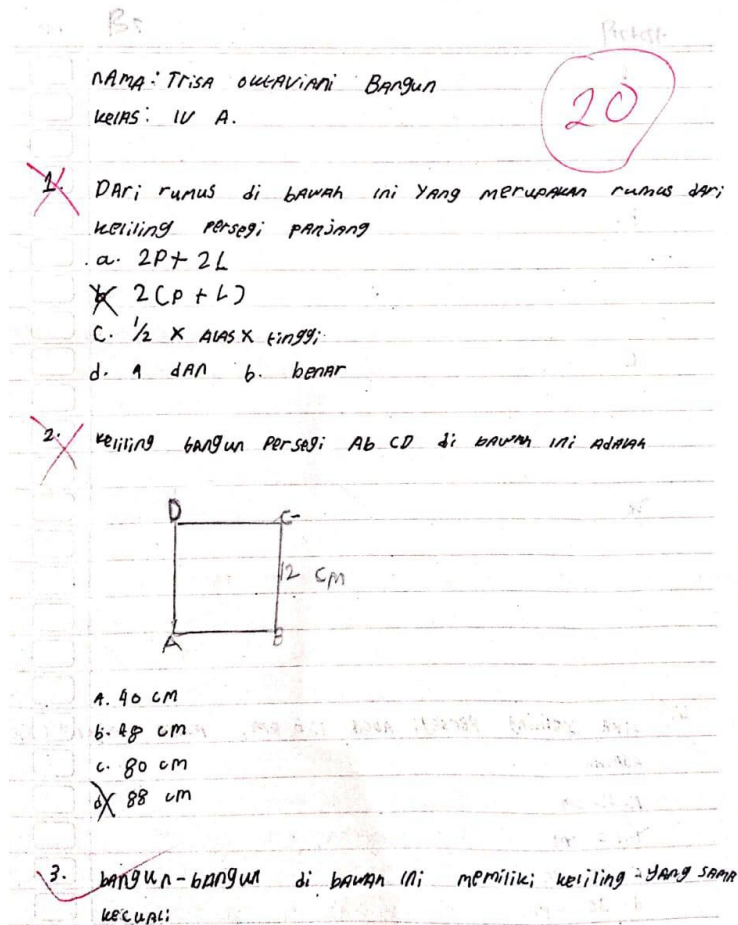 NAMA: Trisa Oktaviani Bangun
Kelas: IV A.
20
1. Dari rumus di bawah ini yang merupakan rumus dari
keliling persegi panjang
a. 2P + 2L
b. 2(P + L)
c. 1/2 x alas x tinggi
d. a dan b. benar
2. keliling bangun persegi Ab CD di bawah ini adalah
D C
12 cm
A B
A. 40 cm
b. 48 cm
c. 80 cm
d. 88 cm
3. bangun-bangun di bawah ini memiliki keliling yang sama
kecuali